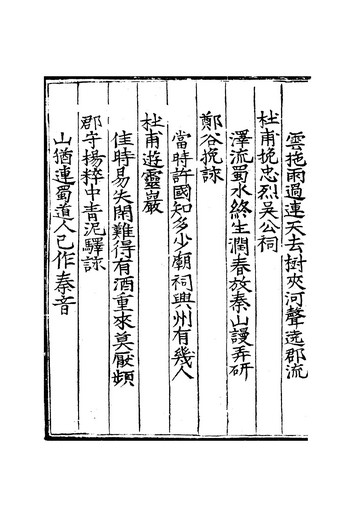 雲拖雨過連天去樹夾河聲遶郡流
杜甫挽忠烈吴公祠
澤流蜀水終生潤春放秦山謾弄研
鄭谷挽詠
當時許國知多少廟祠興州有幾人
杜甫遊靈巖
佳時易失閑難得有酒重來莫厭頻
郡守楊粹中青泥驛詠
山猶連蜀道人已作秦音